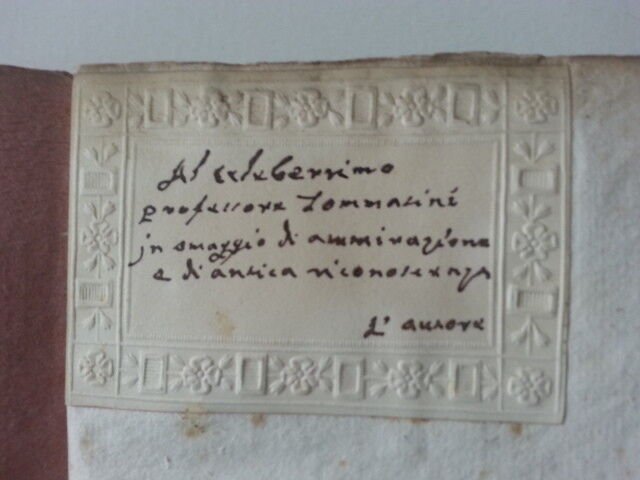 Al celeberrimo
professore Tommasini
in omaggio di ammirazione
e di antica riconoscenza
L' autore